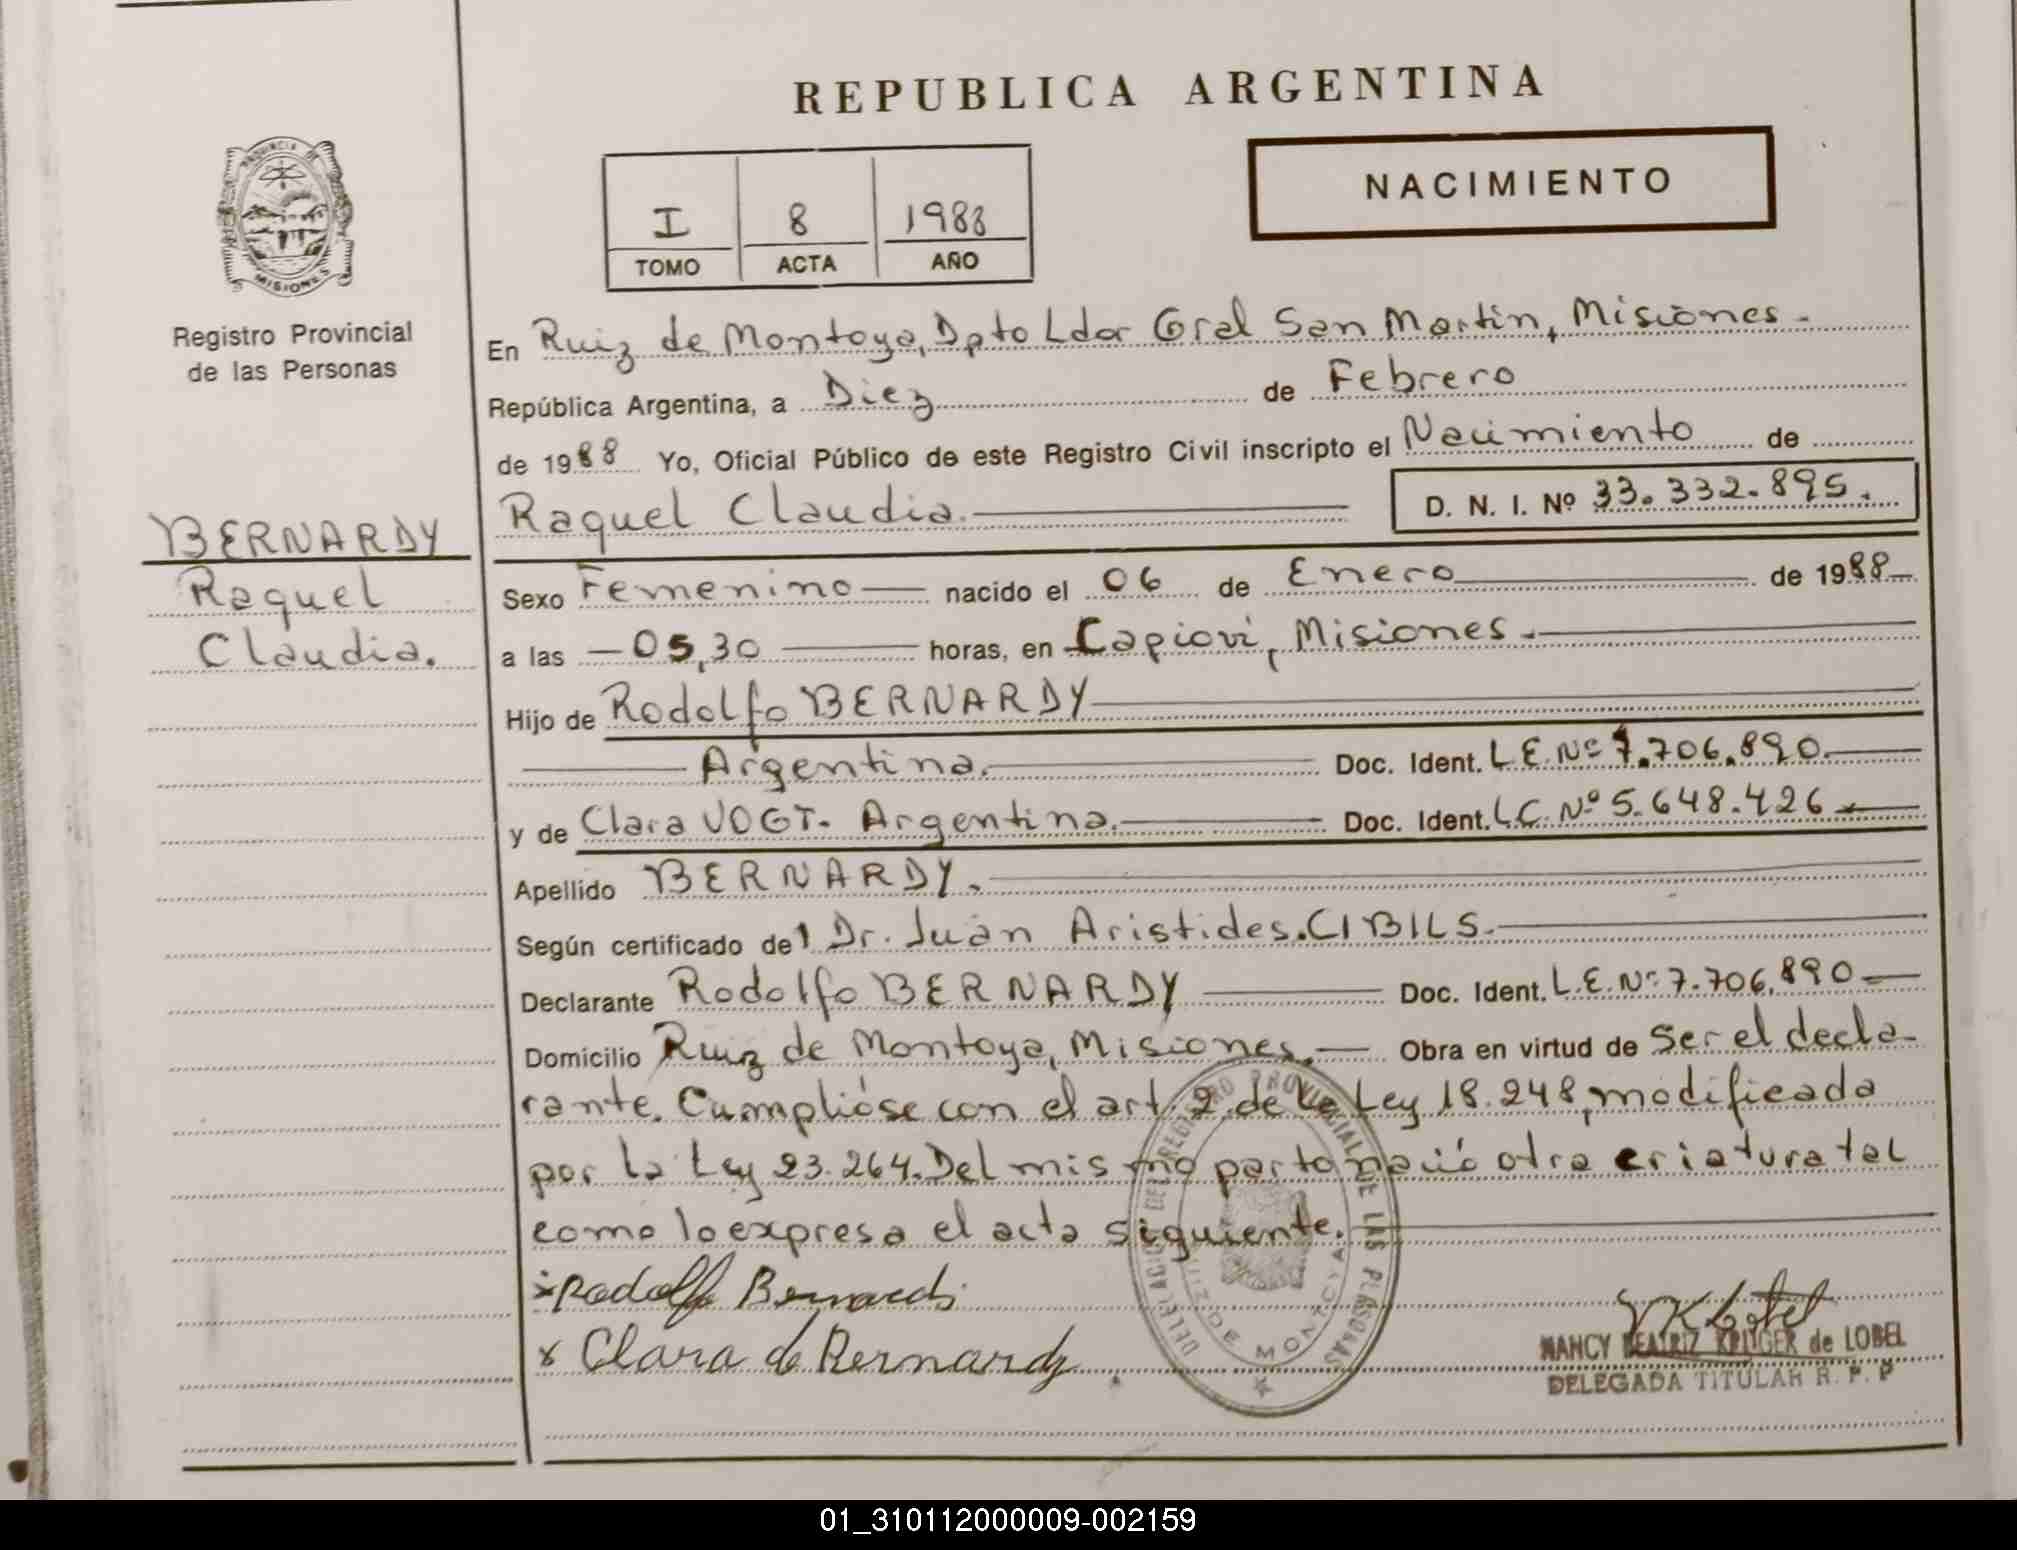 REPUBLICA ARGENTINA
PROVINCIA DE
MISIONES
Registro Provincial
de las Personas
NACIMIENTO
I 8 1988
TOMO ACTA AÑO
En Ruiz de Montoya, Dpto Ldor Gral San Martin, Misiones.
República Argentina, a Diez de Febrero
de 1988 Yo, Oficial Público de este Registro Civil inscripto el Nacimiento de
Raquel Claudia. D. N. I. Nº 33.332.895.
BERNARDY
Raquel
Claudia.
Sexo Femenino nacido el 06 de Enero de 1988
a las 05,30 horas, en Capioví, Misiones.
Hijo de Rodolfo BERNARDY
Argentina. Doc. Ident. L.E. Nº 7.706.890.
y de Clara VOGT. Argentina. Doc. Ident. L.C. Nº 5.648.426
Apellido BERNARDY.
Según certificado del Dr. Juan Aristides CIBILS.
Declarante Rodolfo BERNARDY Doc. Ident. L.E. Nº 7.706.890
Domicilio Ruiz de Montoya, Misiones. Obra en virtud de ser el decla-
rante. Cumplióse con el art. 2 de la Ley 18.248, modificada
por la Ley 23.264. Del mismo parto nació otra criatura tal
como lo expresa el acta siguiente.
x Rodolfo Bernardi
x Clara de Bernardy
DEL REGISTRO PROVINCIAL DE LAS PERSONAS
RUIZ DE MONTOYA
NANCY BEATRIZ KRUGER de LOBEL
DELEGADA TITULAR R. P. P
01_310112000009-002159